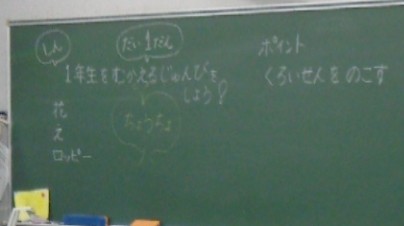 しん
だい1だん
1年生をむかえるじゅんびを
しよう!
花
え
ロッピー
ちょうちょ
ポイント
くろいせんをのこす